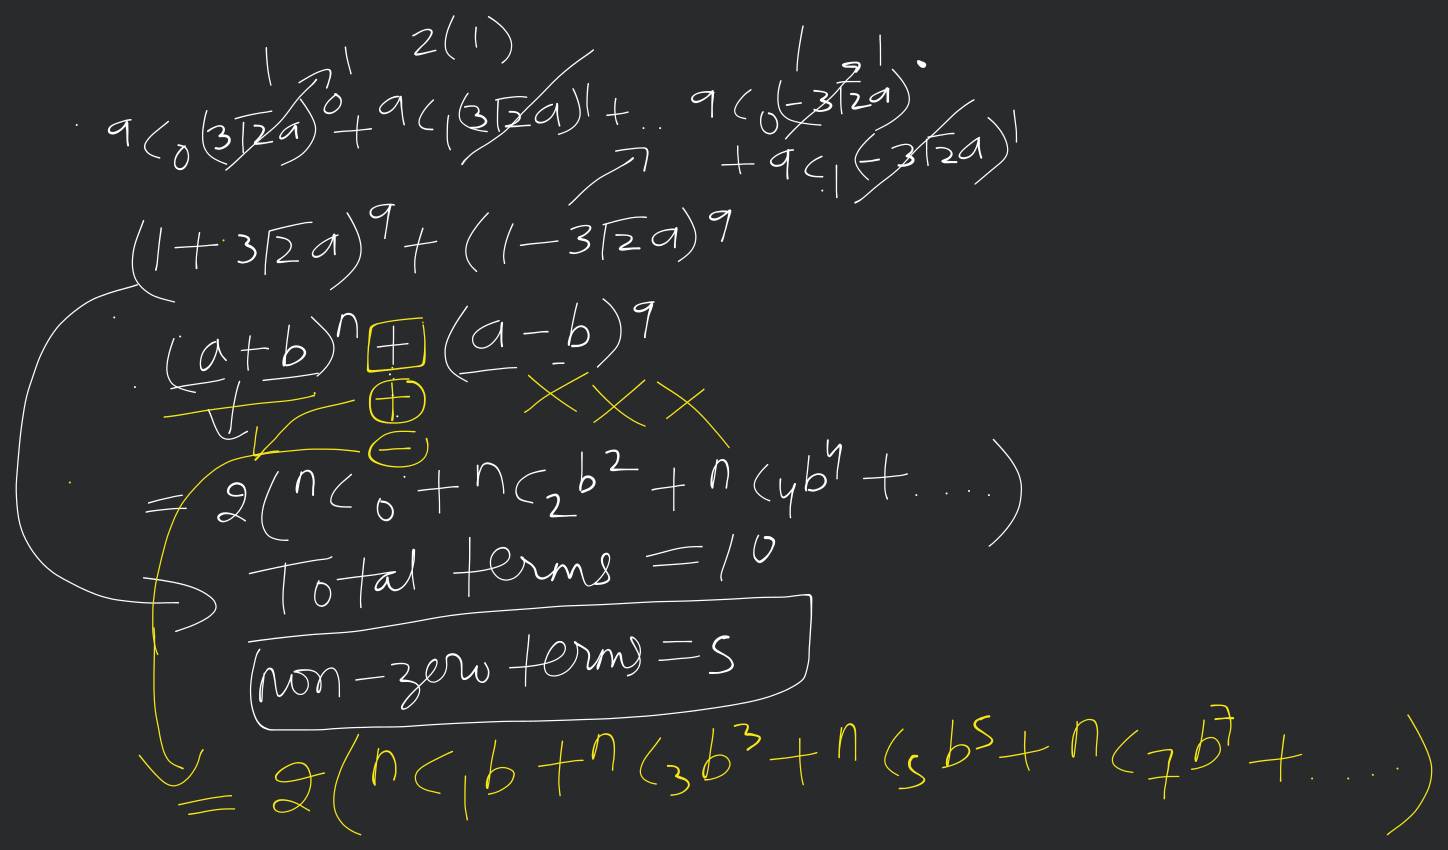 1 1 2(1) 1 1
9C₀(3√2a)⁰ + 9C₁(3√2a)¹ + .. 9C₀(-3√2a)
+ 9C₁(-3√2a)¹
(1+3√2a)⁹ + (1-3√2a)⁹
(a+b)ⁿ + (a-b)⁹
+
-
= 2(ⁿC₀ + ⁿC₂b² + ⁿC₄b⁴ + .....)
Total terms = 10
non-zero terms = 5
= 2(ⁿC₁b + ⁿC₃b³ + ⁿC₅b⁵ + ⁿC₇b⁷ + .....)